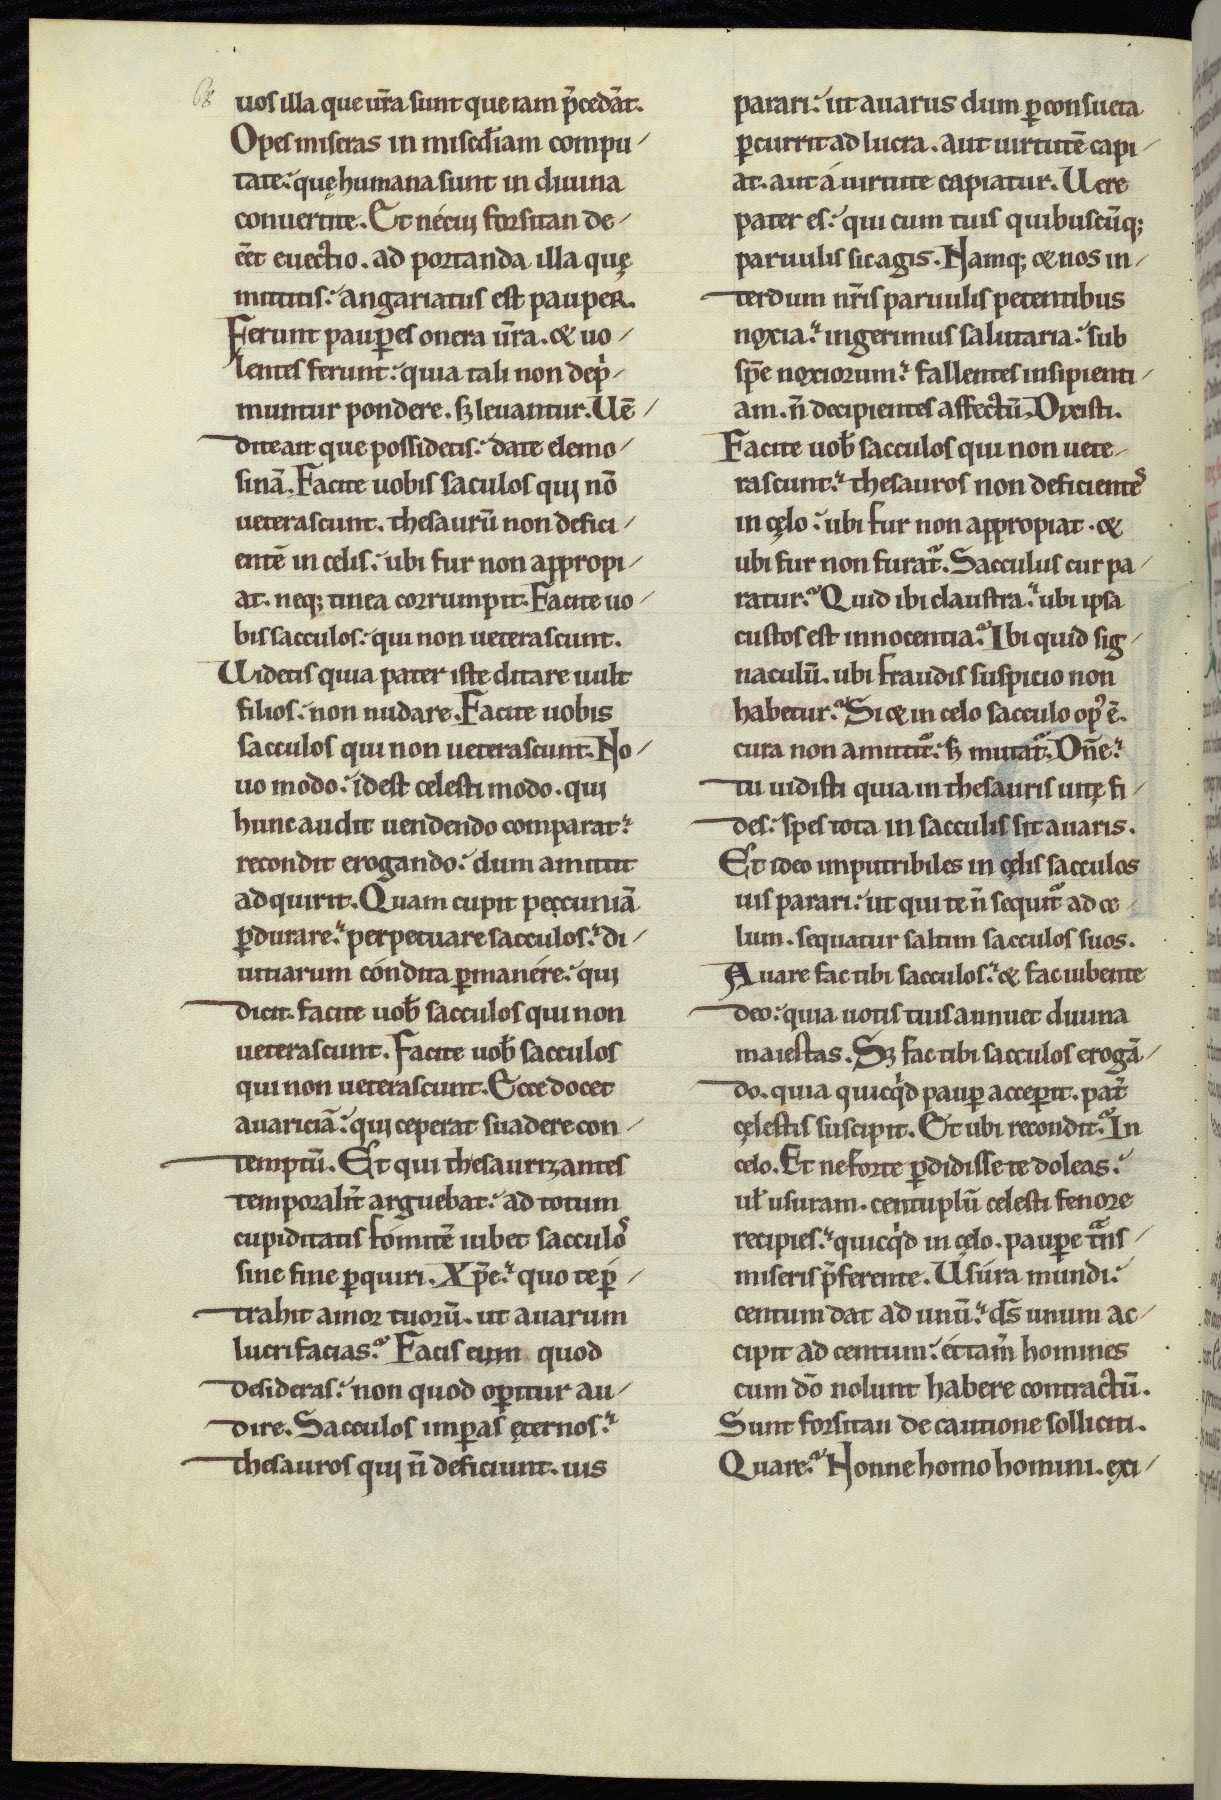 68
uos illa que ur̄a sunt que iam p̄cedāt.
Opes miseras in misc̄diam compu-
tate: quę humana sunt in diuina
conuertite. Et nécuj forsitan de-
ēēt euectio. ad portanda illa quę
mittitis: angariatus est pauper.
Ferunt paup̄es onera ur̄a. & uo-
lentes ferunt: quia tali non dep̍-
muntur pondere. sꝫ leuantur. Uē-
dite ait que possidetis: date elemo-
sinā. Facite uobis saculos quj nō
ueterascunt. thesaurū non defici-
entē in celis: ubi fur non appropi-
at. neq; tinea corrumpit. Facite uo-
bis sacculos: qui non ueterascunt.
Uidetis quia pater iste ditare uult
filios: non nudare. Facite uobis
sacculos qui non ueterascunt. No-
uo modo: id est celesti modo. quj
hunc audit uendendo comparat:
recondit erogando: dum amittit
adquirit. Quam cupit peccuniā
ꝑdurare: perpetuare sacculos: di-
uitiarum cóndita ꝑmanére: quj
dicit. facite uob̄ sacculos qui non
ueterascunt. Facite uob̄ sacculos
qui non ueterascunt. Ecce docet
auariciā: quj ceperat suadere con-
temptū. Et qui thesaurizantes
temporalit̄ arguebat: ad totum
cupiditatis fómitē iubet sacculos
sine fine ꝑquiri. Xp̄e: quo te p̍-
trahit amor tuorū. ut auarum
lucrifacias? Facis cum quod
desideras: non quod oꝑitur au-
dire. Sacculos imꝑas ęternos:
thesauros quj n̄ deficiunt. uis
parari: ut auarus dum ꝑ consueta
ꝑcurrit ad lucra. aut uirtutē capi-
at. aut á uirtute capiatur. Uere
pater es: qui cum tuis quibuscūq;
paruulis sic agis. Namq; & nos in-
terdum nr̄is paruulis petentibus
noxia: ingerimus salutaria: sub
spē noxiorum: fallentes insipienti-
am. n̄ decipientes affectū. Dixisti.
Facite uob̄ sacculos qui non uete-
rascunt: thesauros non deficientes
in cęlo: ubi fur non appropiat. &
ubi fur non furat᷑. Sacculus cur pa-
ratur? Quid ibi claustra: ubi ipsa
custos est innocentia? Ibi quid sig-
naculū. ubi fraudis suspicio non
habetur? Si & in celo sacculo op᷒ ē.
cura non amittit᷑: sꝫ mutat᷑. Dn̄e:
tu uidisti quia in thesauris uitę fi-
des: spes tota in sacculis sit auaris.
Et ideo imputribiles in cęlis sacculos
uis parari: ut qui te n̄ sequit᷑ ad ce-
lum. sequatur saltim sacculos suos.
Auare fac tibi sacculos: & fac iubente
deo: quia uotis tuis annuet diuina
maiestas. Sꝫ fac tibi sacculos erogā-
do. quia quicq̍d pauꝑ acceꝑit. pat̄
cęlestis suscipit. Et ubi recondit? In
celo. Et ne forte ꝑdidisse te doleas:
ul̄ usuram. centuplū celesti fenore
recipies: quicq̍d in cęlo. pauꝑe t̄ns-
miseris p̄ferente. Usúra mundi:
centum dat ad unū: ds̄ unum ac-
cipit ad centum: et tam̄ homines
cum dō nolunt habere contractū.
Sunt forsitan de cautione solliciti.
Quare? Nonne homo homini. exi-